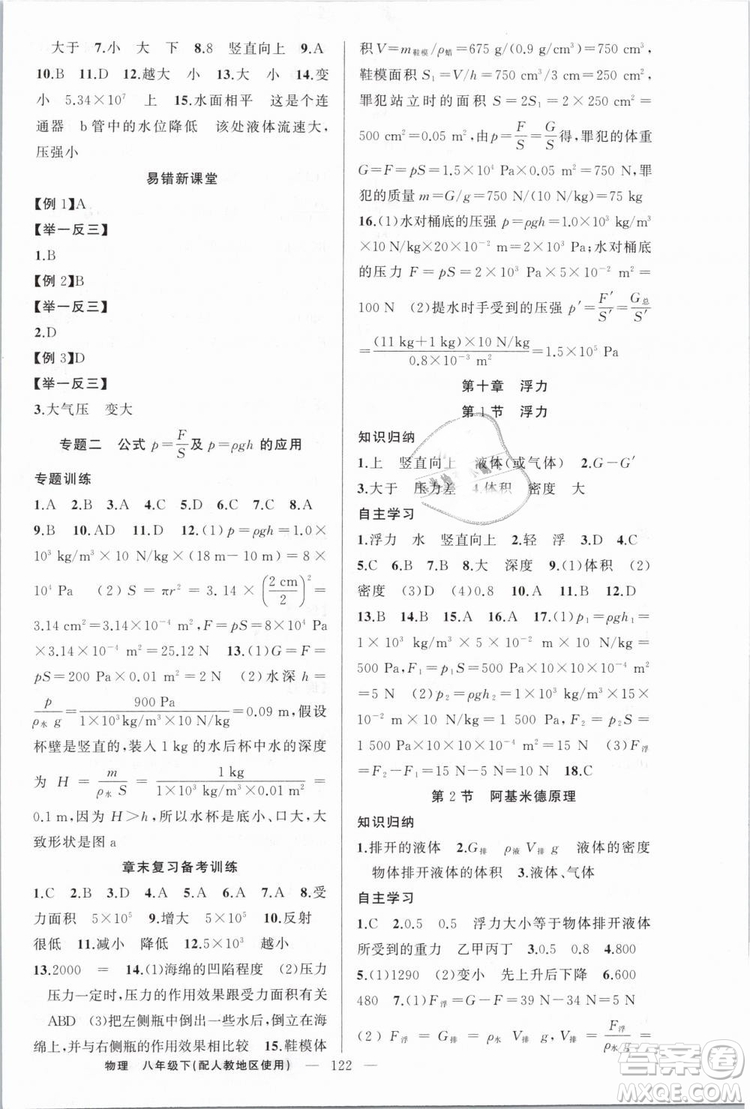 大于 7.小 大 下 8.8 竖直向上 9.A
10.B 11.D 12.越大 小 13.大 小 14.变
小 5.34×10⁷ 上 15.水面相平 这是个连
通器 b管中的水位降低 该处液体流速大,
压强小
易错新课堂
【例1】A
【举一反三】
1.B
【例2】B
【举一反三】
2.D
【例3】D
【举一反三】
3.大气压 变大
专题二 公式 p=F/S 及 p=ρgh 的应用
专题训练
1.A 2.B 3.A 4.C 5.D 6.C 7.B 8.C
9.B 10.AD 11.D 12.(1)p=ρgh=1.0×
10³ kg/m³×10 N/kg×(18 m-10 m)=8×10⁴
Pa (2)S=πr²=3.14×(2 cm/2)²=
3.14 cm²=3.14×10⁻⁴ m²,F=pS=8×10⁴ Pa
×3.14×10⁻⁴ m²=25.12 N 13.(1)G=F=
pS=200 Pa×0.01 m²=2 N (2)水深 h=
p/ρ水g=900 Pa/1×10³ kg/m³×10 N/kg=0.09 m,假设
杯壁是竖直的,装入1 kg的水后杯中水的深度
为 H=m/ρ水S=1 kg/1×10³ kg/m³×0.01 m²=
0.1 m,因H>h,所以水杯是底小、口大,大
致形状是图a
章末复习备考训练
1.C 2.B 3.D 4.A 5.B 6.D 7.A 8.受
力面积 5×10⁵ 9.增大 5×10⁵ 10.反射
很低 11.减小 降低 12.5×10³ 越小
13.2000 = 14.(1)海绵的凹陷程度 (2)压力
压力一定时,压力的作用效果跟受力面积有关
ABD (3)将左侧瓶中倒出一些水后,放在海
绵上,并与右侧瓶的作用效果相比较 15.鞋模体
积 V=m鞋模/ρ鞋模=675 g/(0.9 g/cm³)=750 cm³,
鞋模面积 S₁=V/h=750 cm³/3 cm=250 cm²,
罪犯站立时的面积 S=2S₁=2×250 cm²=
500 cm²=0.05 m²,由 p=F/S 得,罪犯的体重
G=F=pS=1.5×10⁴ Pa×0.05 m²=750 N,罪
犯的质量 m=G/g=750 N/(10 N/kg)=75 kg
16.(1)水对桶底的压强 p=ρgh=1.0×10³
kg/m³×10 N/kg×0.2 m=2×10³ Pa;水对桶底
的压力 F=pS=2×10³ Pa×5×10⁻² m²=
100 N (2)提水时手受到的压强 p′=F′/S′=G总/S′
=(11 kg+1 kg)×10 N/kg/0.8×10⁻³ m²=1.5×10⁵ Pa
第十章 浮力
第1节 浮力
知识归纳
1.上 竖直向上 液体(或气体) 2.G-G′
3.大于 压力差 4.体积 密度 大
自主学习
1.浮力 水 竖直向上 2.轻 浮 3.D 4.C
5.C 6.1 7.B 8.大 深度 9.(1)体积 (2)
密度 (3)D (4)0.8 10.B 11.D 12.D
13.B 14.B 15.A 16.A 17.(1)p₁=ρgh₁
=1×10³ kg/m³×10 N/kg×0.05 m=500 Pa
F₁=p₁S=500 Pa×1×10⁻² m²
=5 N (2)p₂=ρgh₂=1×10³ kg/m³×
10 N/kg×0.15 m=1 500 Pa F₂=
p₂S=1 500 Pa×0.01 m²=15 N (3)F浮=
F₂-F₁=15 N-5 N=10 N 18.C
第2节 阿基米德原理
知识归纳
1.排开的液体 2.G排 ρ液V排g 液体的密度
物体排开液体的体积 3.液体、气体
自主学习
1.C 2.0.5 0.5 浮力大小等于物体排开液体
所受到的重力 乙甲丙丁 3.B 4.0.5
5.(1)1290 (2)变小 仍能 6.600
480 7.(1)F浮=
(2)F浮=G排=ρ水V排g V排=F浮/ρ水g=
物理 八年级下(配人教地区使用) — 122 —